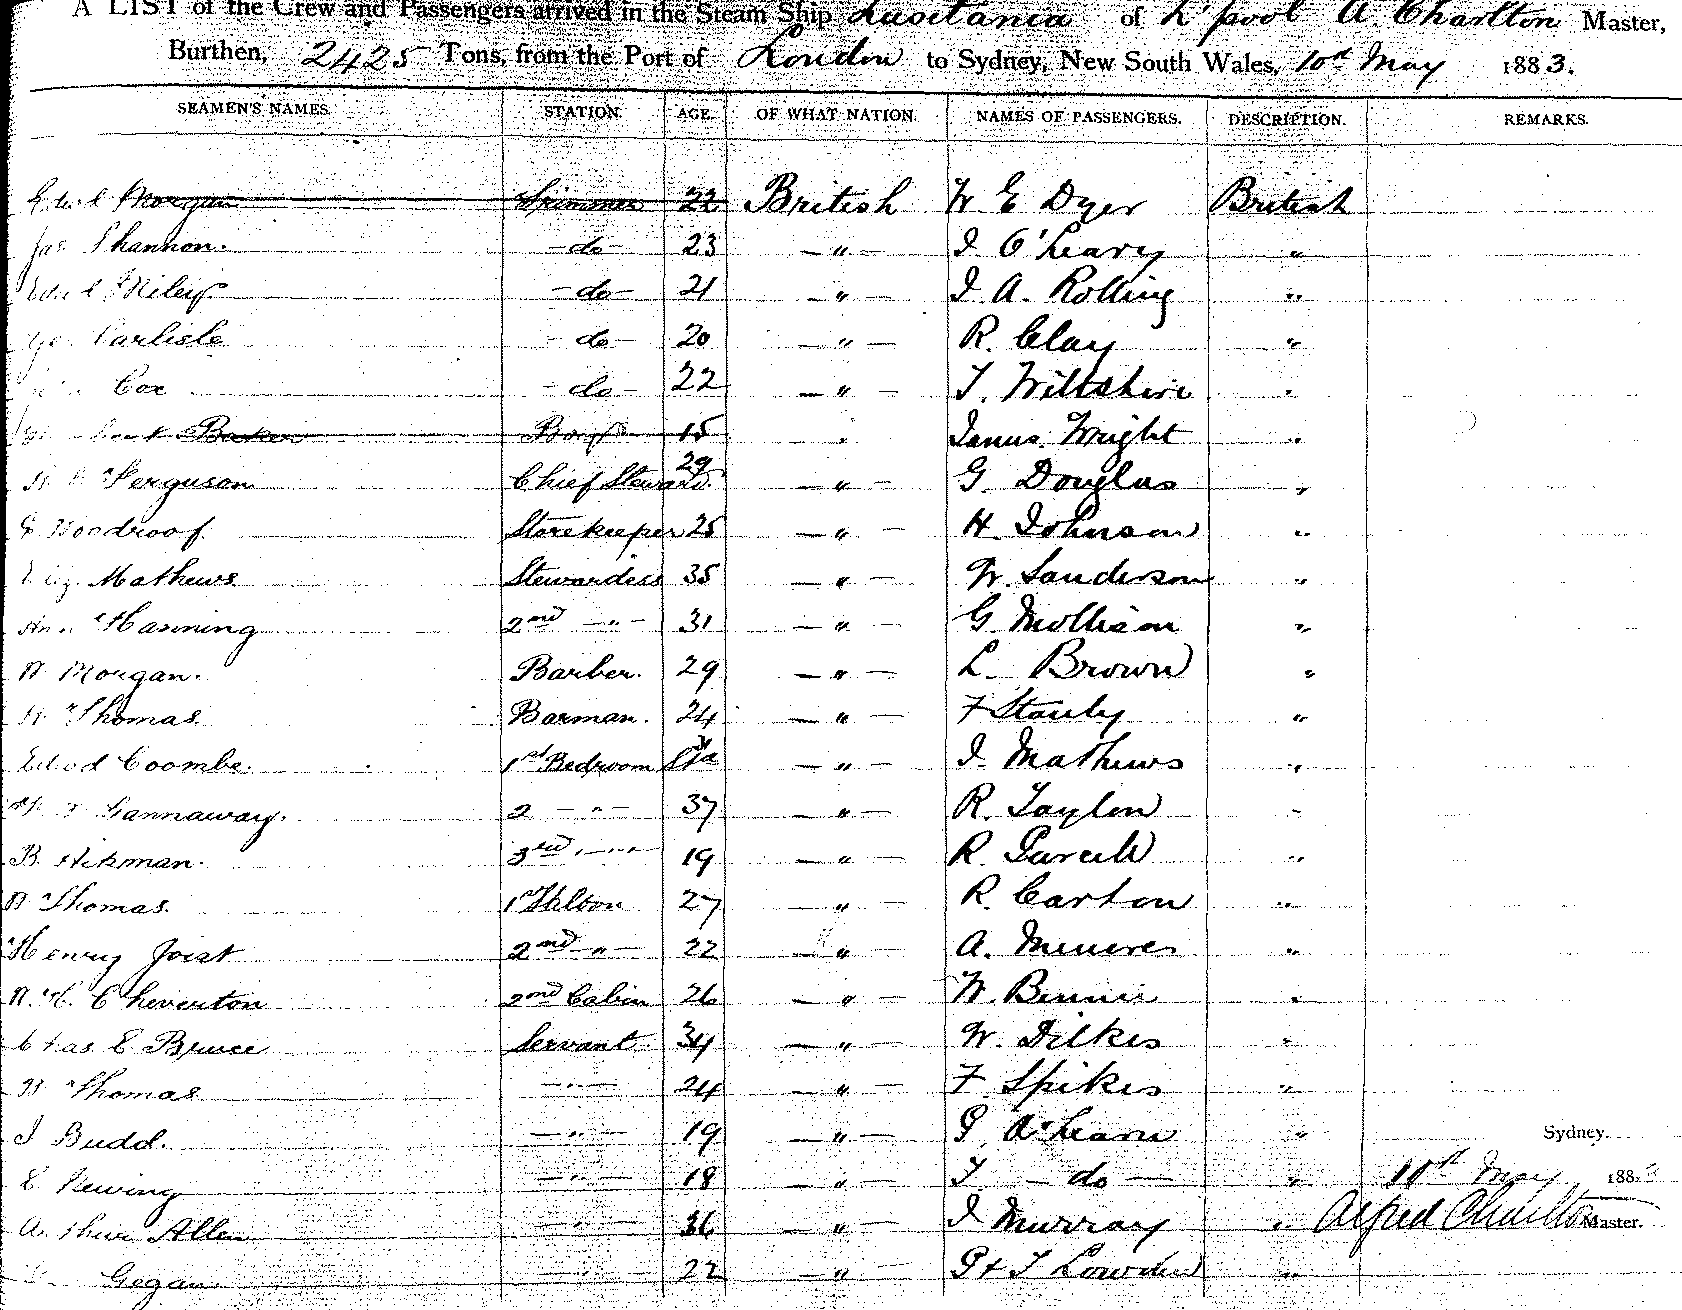 A LIST of the Crew and Passengers arrived in the Steam Ship Lusitania of L'pool A. Charlton Master,
Burthen, 2425 Tons, from the Port of London to Sydney, New South Wales, 10th May 1883.
SEAMEN'S NAMES. STATION. AGE. OF WHAT NATION. NAMES OF PASSENGERS. DESCRIPTION. REMARKS.
Morgan Trimmer 22 British W E Dyer British
Jas Shannon. - do - 23 — " — J O'Leary "
Riley - do - 21 " — J A. Rolling "
Geo Carlisle - do - 20 " — R. Clay "
Cox - do - 22 — " — T. Wiltshire "
Baker Boy 15 " James Wright "
Ferguson Chief Steward. 29 — " — G. Douglas "
Woodroof. Storekeeper 25 — " — H Johnson "
Eliz. Mathews Stewardess 35 — " — W. Sanderson "
Ann Hanning 2nd — " — 31 — " — G Mollison "
W Morgan. Barber. 29 — " — L Brown "
Thomas Barman. 24 — " — F Stanly "
Coombe. 1st Bedroom — " — J. Mathews "
Gannaway. 2 — " — 37 — " — R. Taylor "
B. Hikman. 3rd — " — 19 — " — R
W Thomas. 1st 27 — " — R. Carton "
Henry Joist 2nd " — 22 — " — A.
W. H. Cheverton 2nd Cabin 26 — " — W. Binnie "
Chas E Bruce Servant 34 — " — W. Dilkes "
Thomas — " — 24 — " — F Spikes "
J Budd. — " — 19 — " — P " Sydney.
E Newing — " — 18 — " — T — do — " 10th May 1883
Allen — " — 36 — " — J Murray " Alfred Charlton Master.
Gegan " 22 " — P & T Lowden "